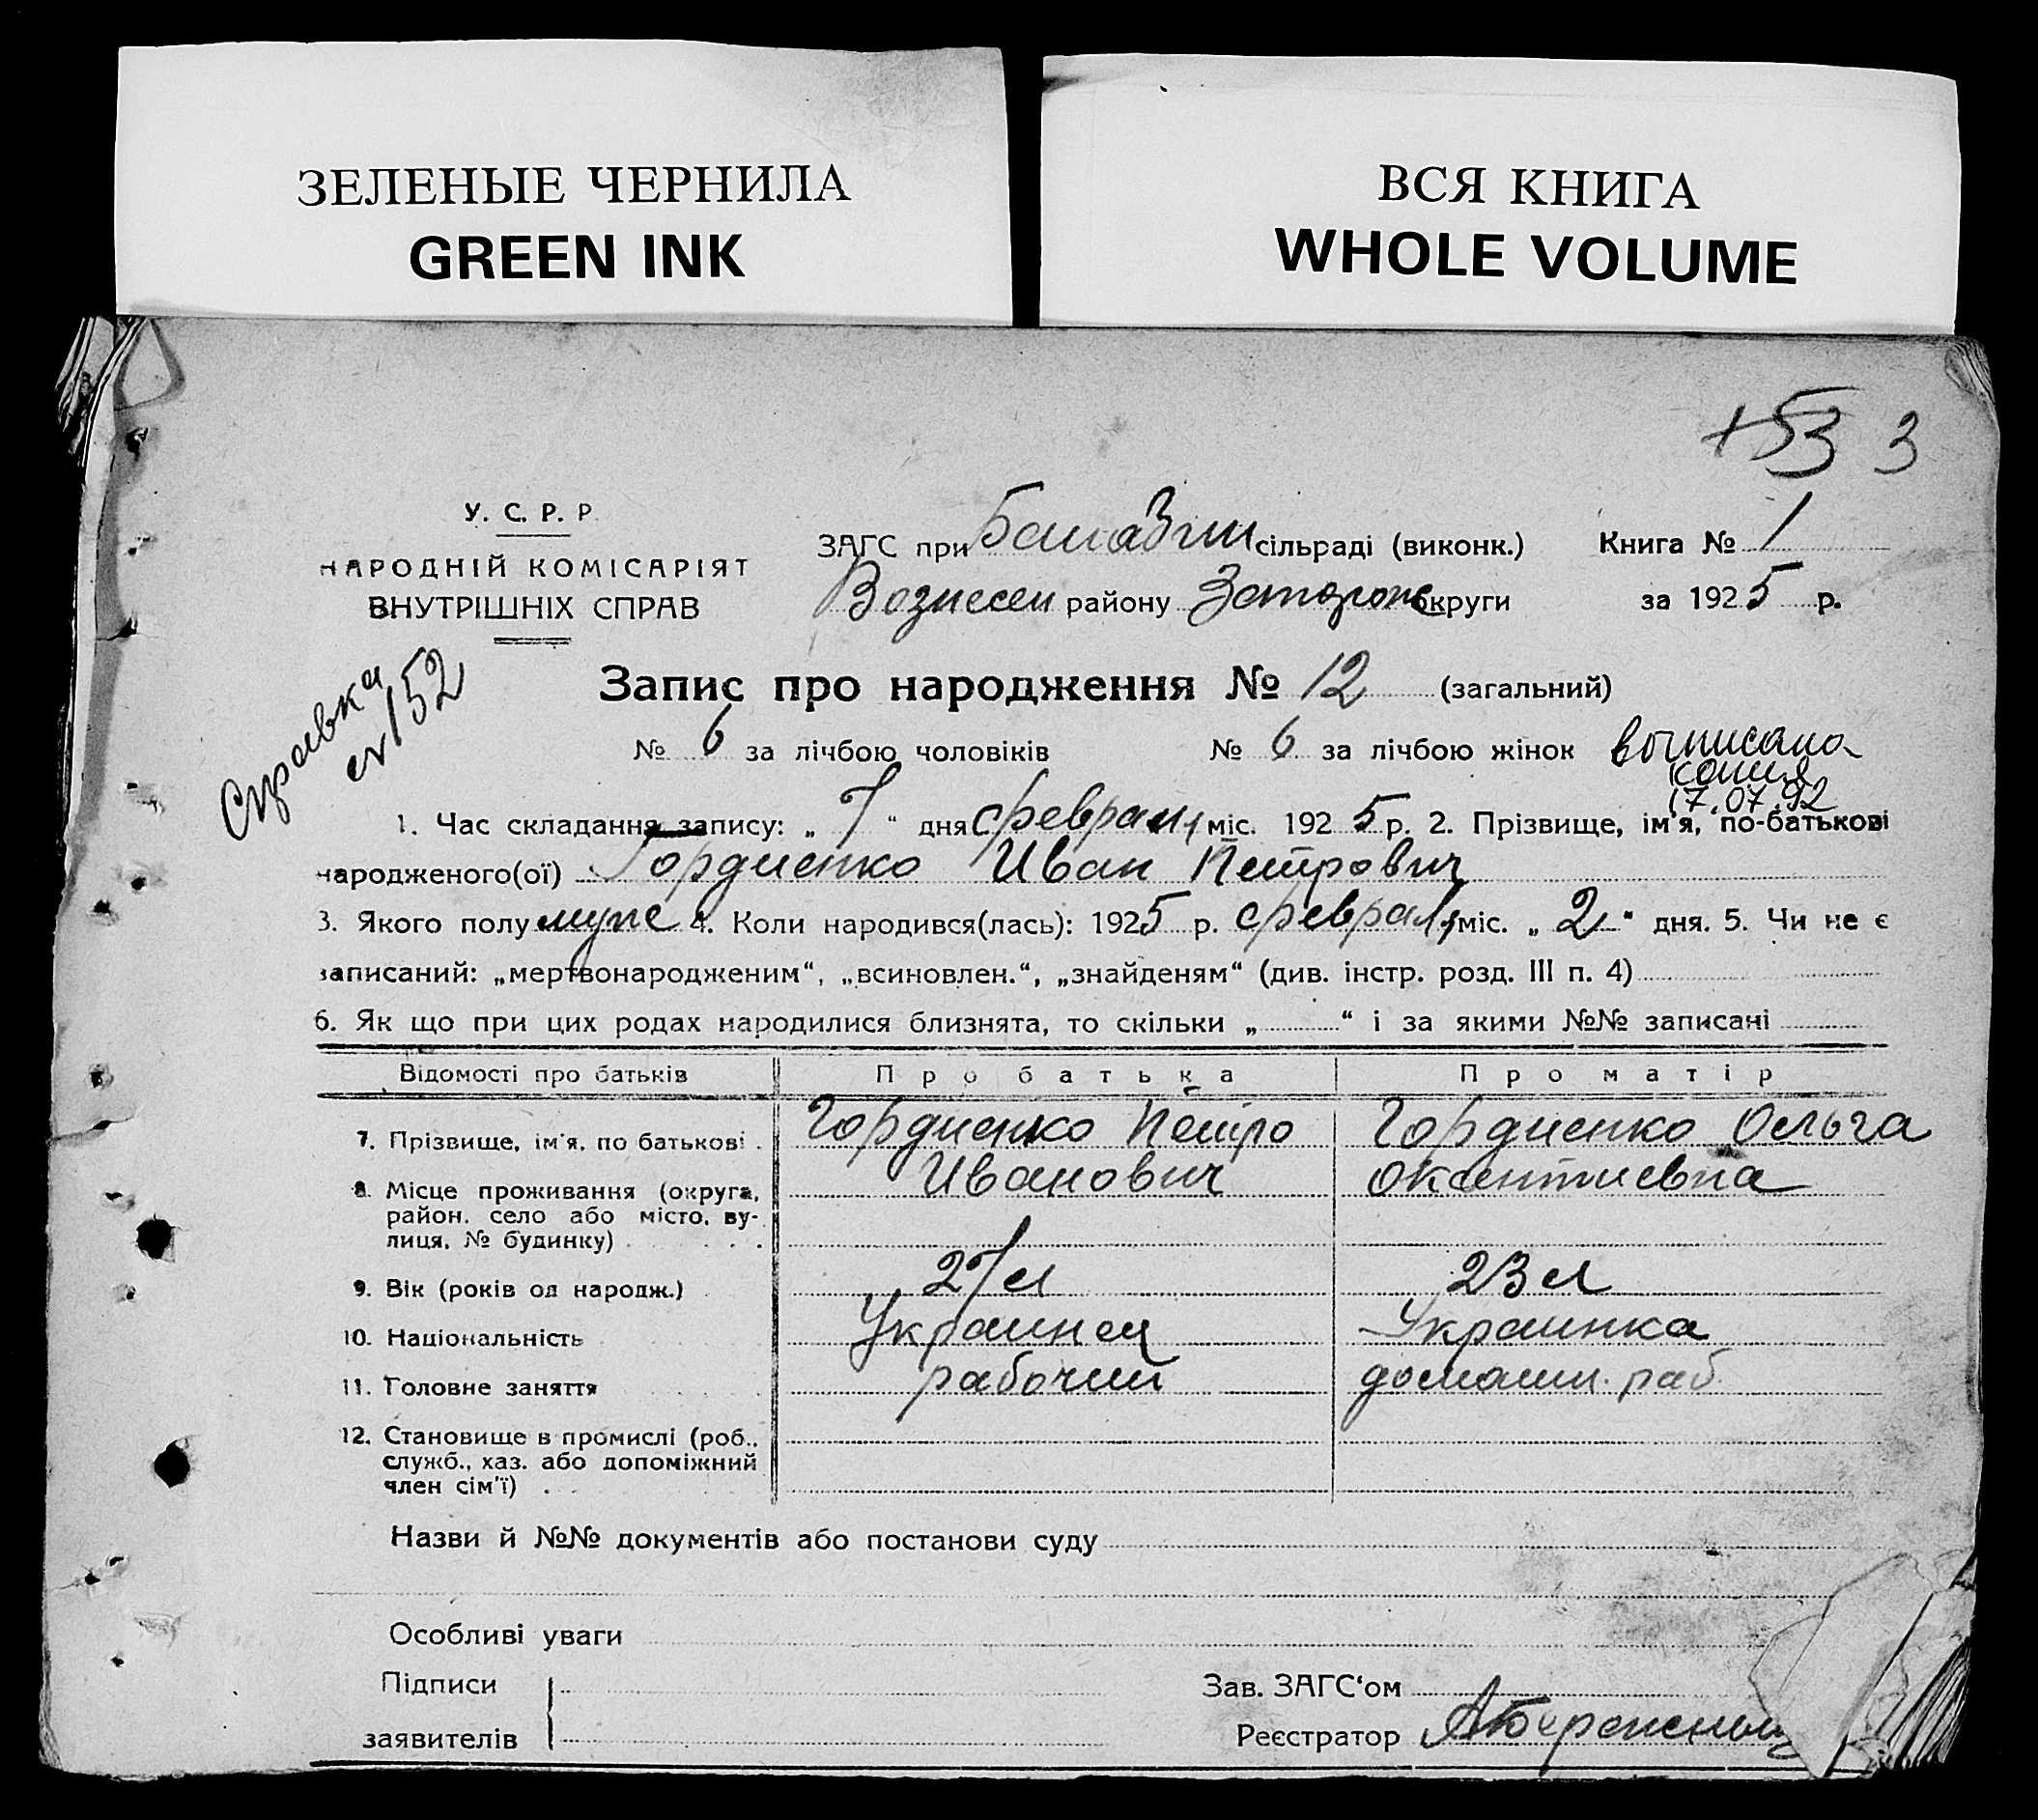 ЗЕЛЕНЫЕ ЧЕРНИЛА
GREEN INK
ВСЯ КНИГА
WHOLE VOLUME
53 3
У. С. Р. Р.
НАРОДНІЙ КОМІСАРІЯТ
ВНУТРІШНІХ СПРАВ
ЗАГС при сільраді (виконк.) Книга № 1
Вознесен району Запорож округи за 1925 р.
Справка
№ 152
Запис про народження № 12 (загальний)
№ 6 за лічбою чоловіків № 6 за лічбою жінок
выписана
копия
17.07.92
1. Час складання запису: „ 7 “ дня февраля міс. 1925 р. 2. Прізвище, ім'я, по-батькові
народженого(ої) Гордиенко Иван Петрович
3. Якого полу муж 4. Коли народився(лась): 1925 р. февраля міс. „ 2 “ дня. 5. Чи не є
записаний: „мертвонародженим“, „всиновлен.“, „знайденям“ (див. інстр. розд. III п. 4)
6. Як що при цих родах народилися близнята, то скільки „ “ і за якими №№ записані
Відомості про батьків Про батька Про матір
7. Прізвище, ім'я, по батькові Гордиенко Петро Гордиенко Ольга
Иванович
8. Місце проживання (округа,
район, село або місто, ву-
лиця, № будинку)
9. Вік (років од народж.) 27 л 23 л
10. Національність Украинец Украинка
11. Головне заняття рабочий домашн. раб.
12. Становище в промислі (роб.,
служб., хаз. або допоміжний
член сім'ї)
Назви й №№ документів або постанови суду
Особливі уваги
Підписи
заявителів
Зав. ЗАГС'ом
Реєстратор